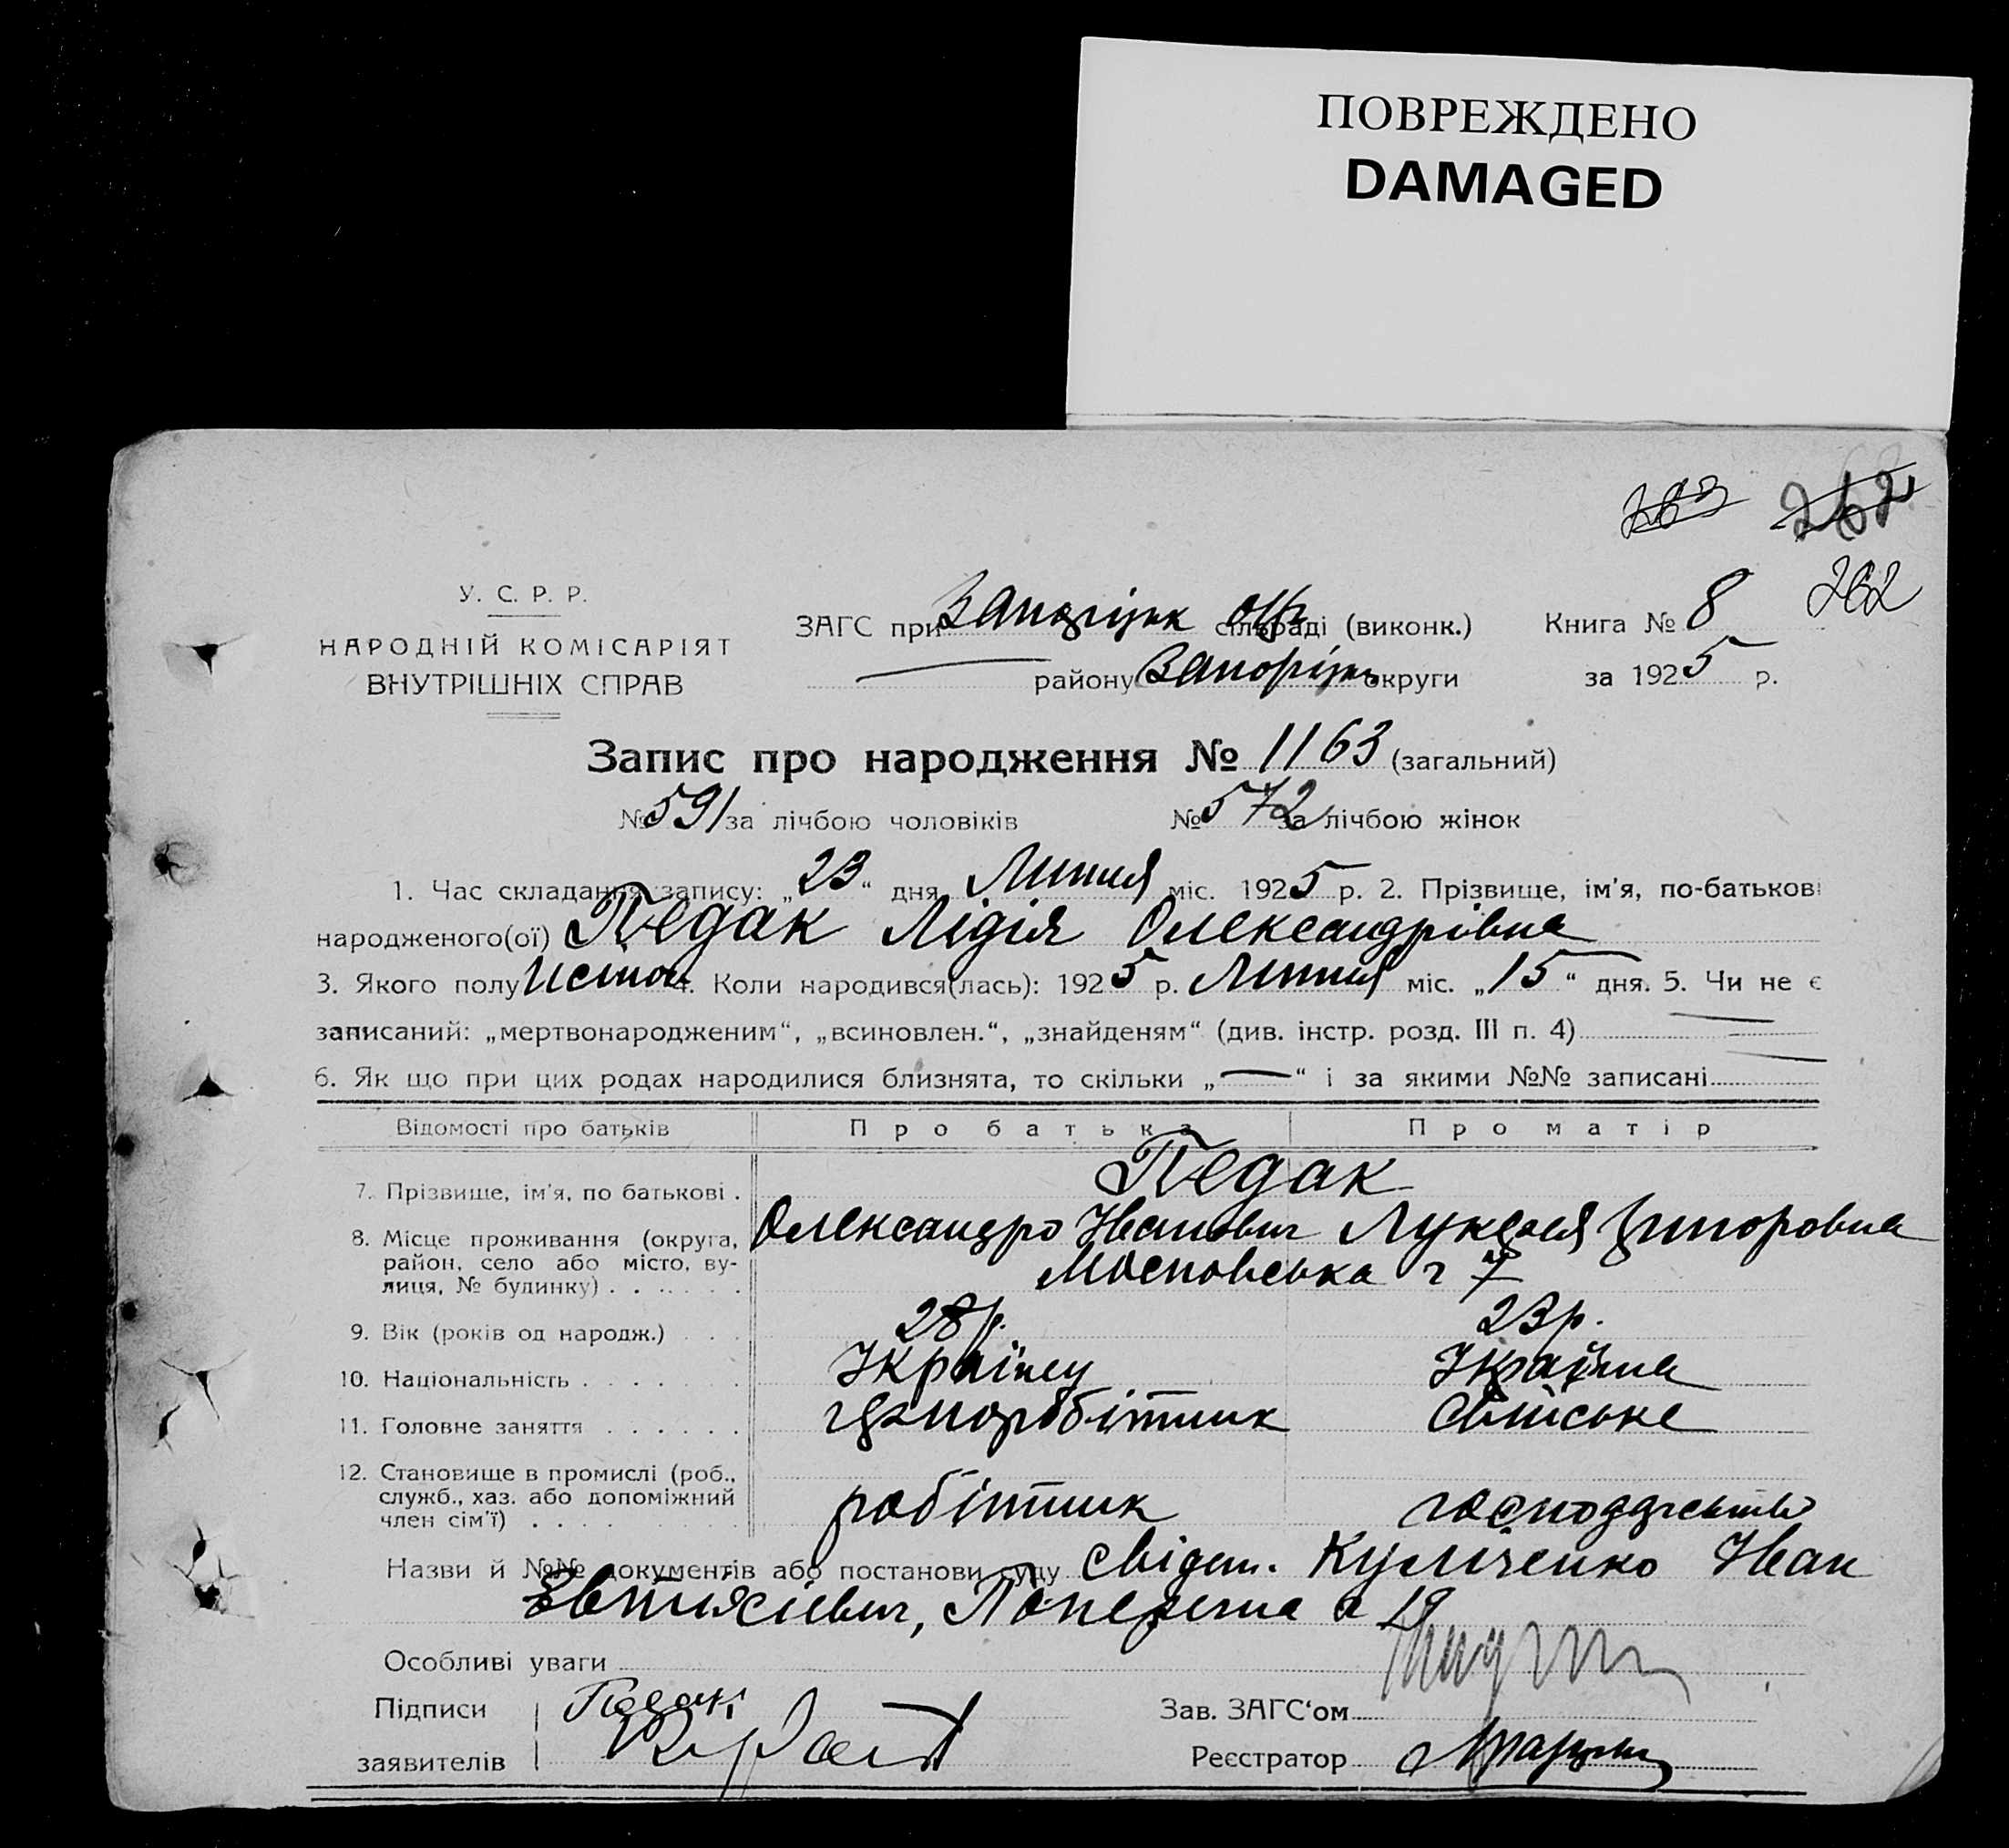 ПОВРЕЖДЕНО
DAMAGED
262
У. С. Р. Р.
НАРОДНІЙ КОМІСАРІЯТ
ВНУТРІШНІХ СПРАВ
ЗАГС при Запоріжж сільраді (виконк.) Книга № 8
району Запоріжж округи за 1925 р.
Запис про народження № 1163 (загальний)
№ 591 за лічбою чоловіків № 572 за лічбою жінок
1. Час складання запису: „23“ дня Липня міс. 1925 р. 2. Прізвище, ім'я, по-батькові
народженого(ої) Педак Лідія Олександрівна
3. Якого полу 4. Коли народився(лась): 1925 р. Липня міс. „15“ дня. 5. Чи не є
записаний: „мертвонародженим“, „всиновлен.“, „знайденям“ (див. інстр. розд. III п. 4)
6. Як що при цих родах народилися близнята, то скільки „—“ і за якими №№ записані
Відомості про батьків Про батька Про матір
7. Прізвище, ім'я, по батькові . Педак
8. Місце проживання (округа, Олександро Іванович
район, село або місто, ву-
лиця, № будинку) . . . . . . Московська 7
9. Вік (років од народж.) . . . 28 р. 23 р.
10. Національність . . . . . . . Українец Українка
11. Головне заняття . . . . . . чорноробітник Свійське
12. Становище в промислі (роб.,
служб., хаз. або допоміжний робітник господарство
член сім'ї) . . . . . . . . .
Назви й №№ документів або постанови суду свідет. Куліченко Іван
Поперечна 19
Особливі уваги
Підписи Педак
Зав. ЗАГС'ом
заявителів
Реєстратор